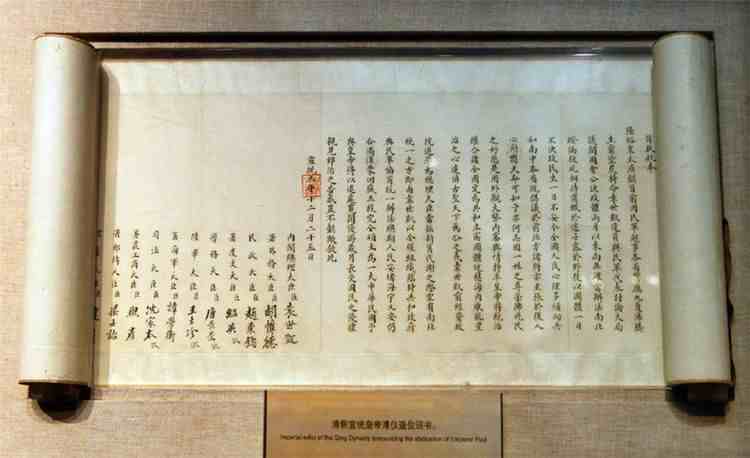 奉旨朕欽奉
隆裕皇太后懿旨前因民軍起事各省響應九夏沸騰
生靈塗炭特命袁世凱遣員與民軍代表討論大局
議開國會公決政體兩月以來尚無確當辦法南北
暌隔彼此相持商輟於途士露於野徒以國體一日
不決故民生一日不安今全國人民心理多傾向共
和南中各省既倡議於前北方諸將亦主張於後人
心所嚮天命可知予亦何忍因一姓之尊榮拂兆民
之好惡是用外觀大勢內審輿情特率皇帝將統治
權公諸全國定為共和立憲國體近慰海內厭亂望
治之心遠協古聖天下為公之義袁世凱前經資政
院選舉為總理大臣當茲新舊代謝之際宜有南北
統一之方即由袁世凱以全權組織臨時共和政府
與民軍協商統一辦法總期人民安堵海宇乂安仍
合滿漢蒙回藏五族完全領土為一大中華民國予
與皇帝得以退處寬閒優游歲月長受國民之優禮
親見郅治之告成豈不懿歟欽此
宣統三年十二月二十五日
內閣總理大臣臣袁世凱
署外務大臣臣胡惟德
民政大臣臣趙秉鈞
署度支大臣臣紹英假
學務大臣臣唐景崇假
陸軍大臣臣王士珍假
署海軍大臣臣譚學衡
司法大臣臣沈家本假
署農工商大臣臣熙彥
署郵傳大臣臣梁士詒
清朝宣统皇帝溥仪退位诏书。
Imperial edict of the Qing Dynasty announcing the abdication of Emperor Puyi